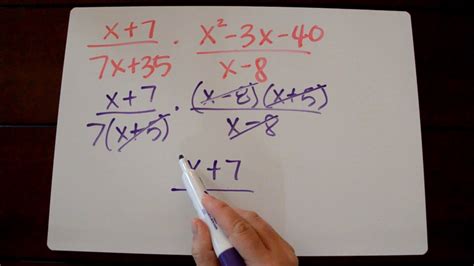 x+7 / 7x+35 · x²-3x-40 / x-8
x+7 / 7(x+5) · (x-8)(x+5) / x-8
x+7